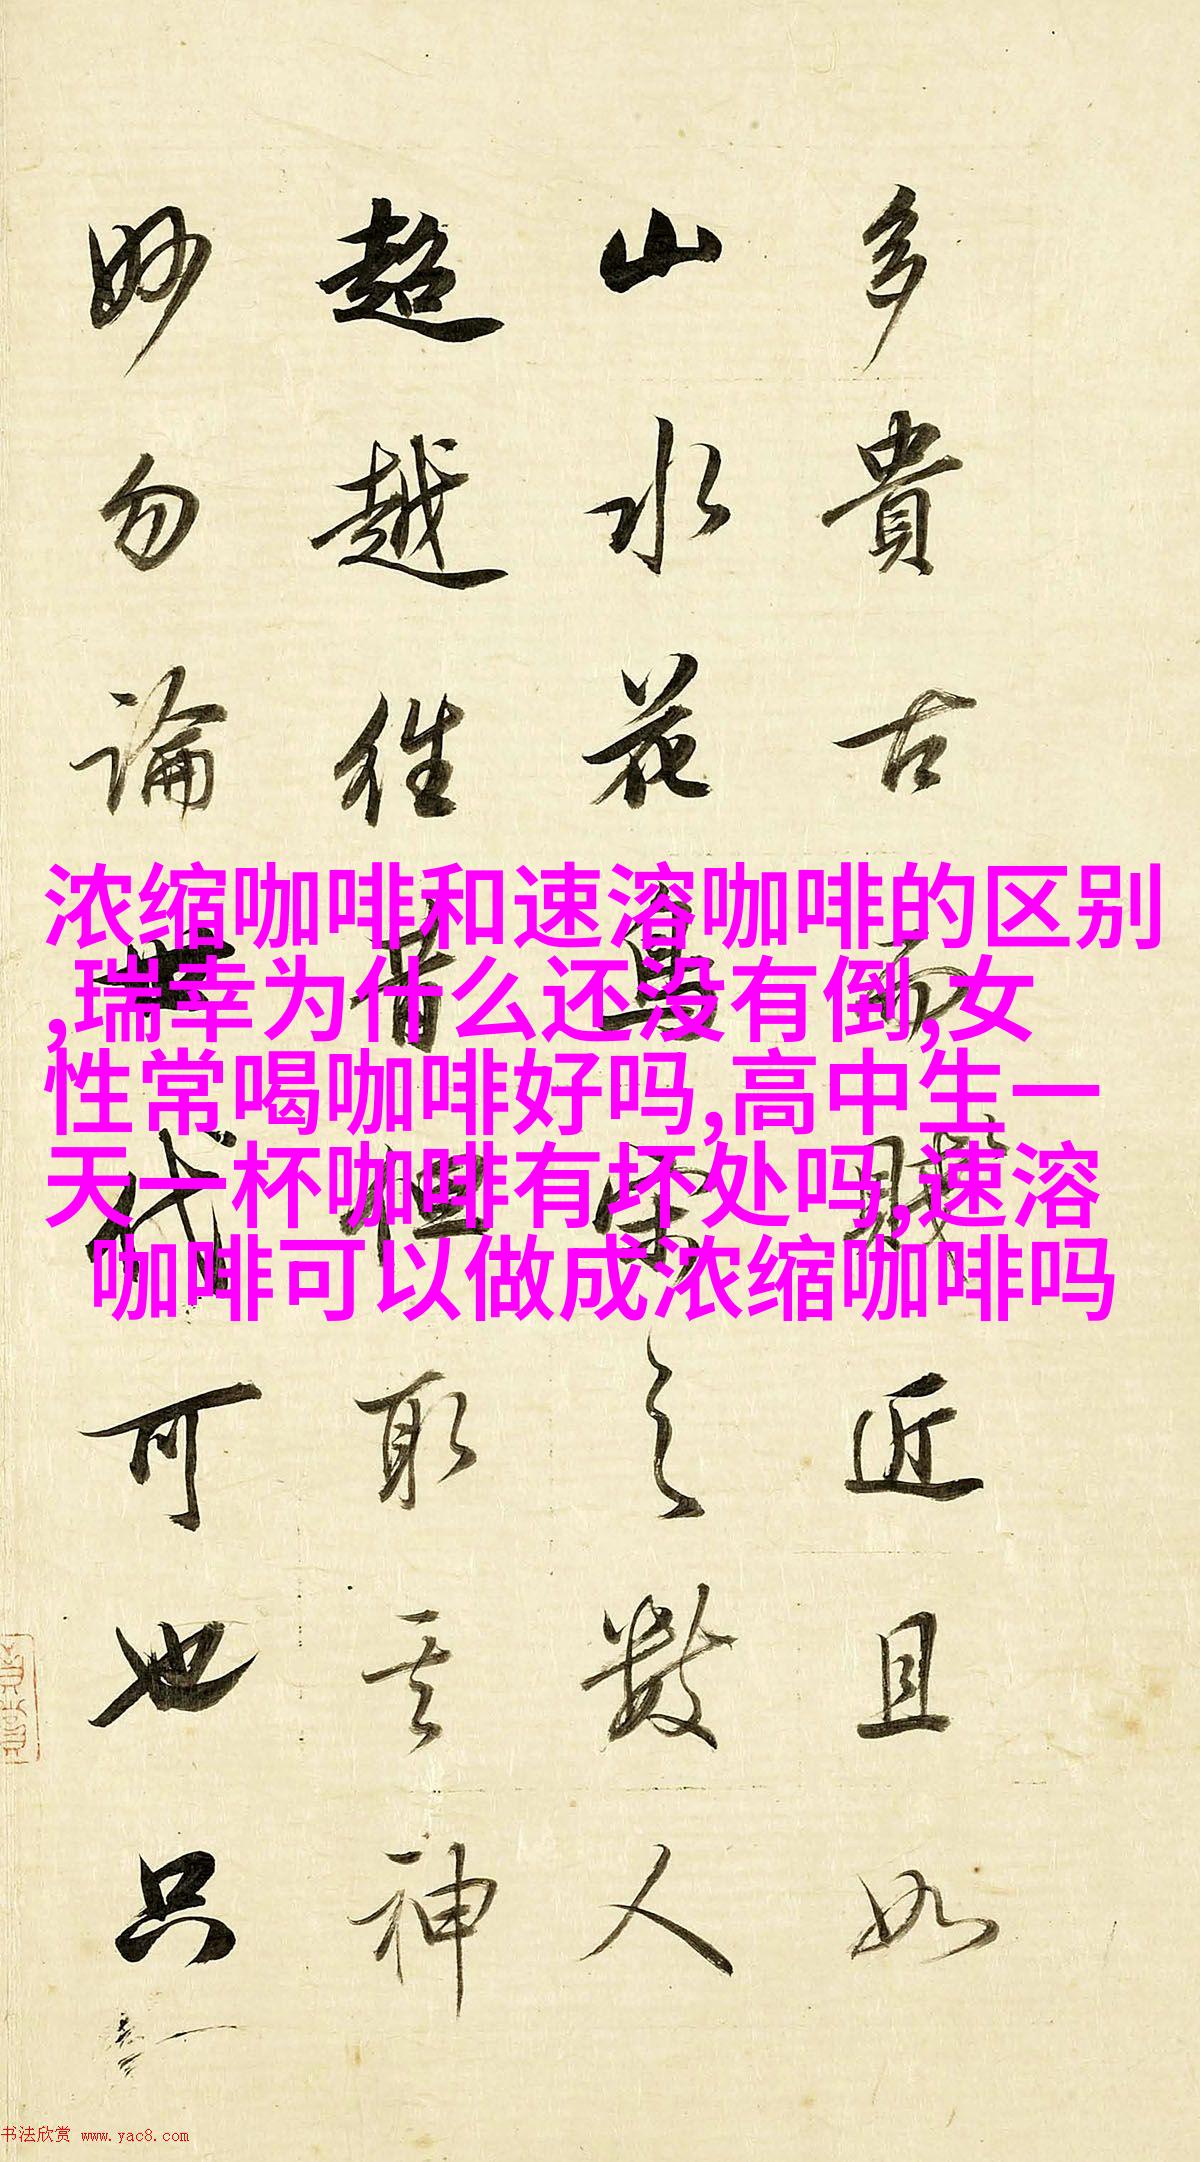 多貴古而賤近且如
山水花鳥宋之數人
超越往昔但取其神
妙勿論世代可也只
浓缩咖啡和速溶咖啡的区别
,瑞幸为什么还没有倒,女
性常喝咖啡好吗,高中生一
天一杯咖啡有坏处吗,速溶
咖啡可以做成浓缩咖啡吗
书法欣赏 www.yac8.com